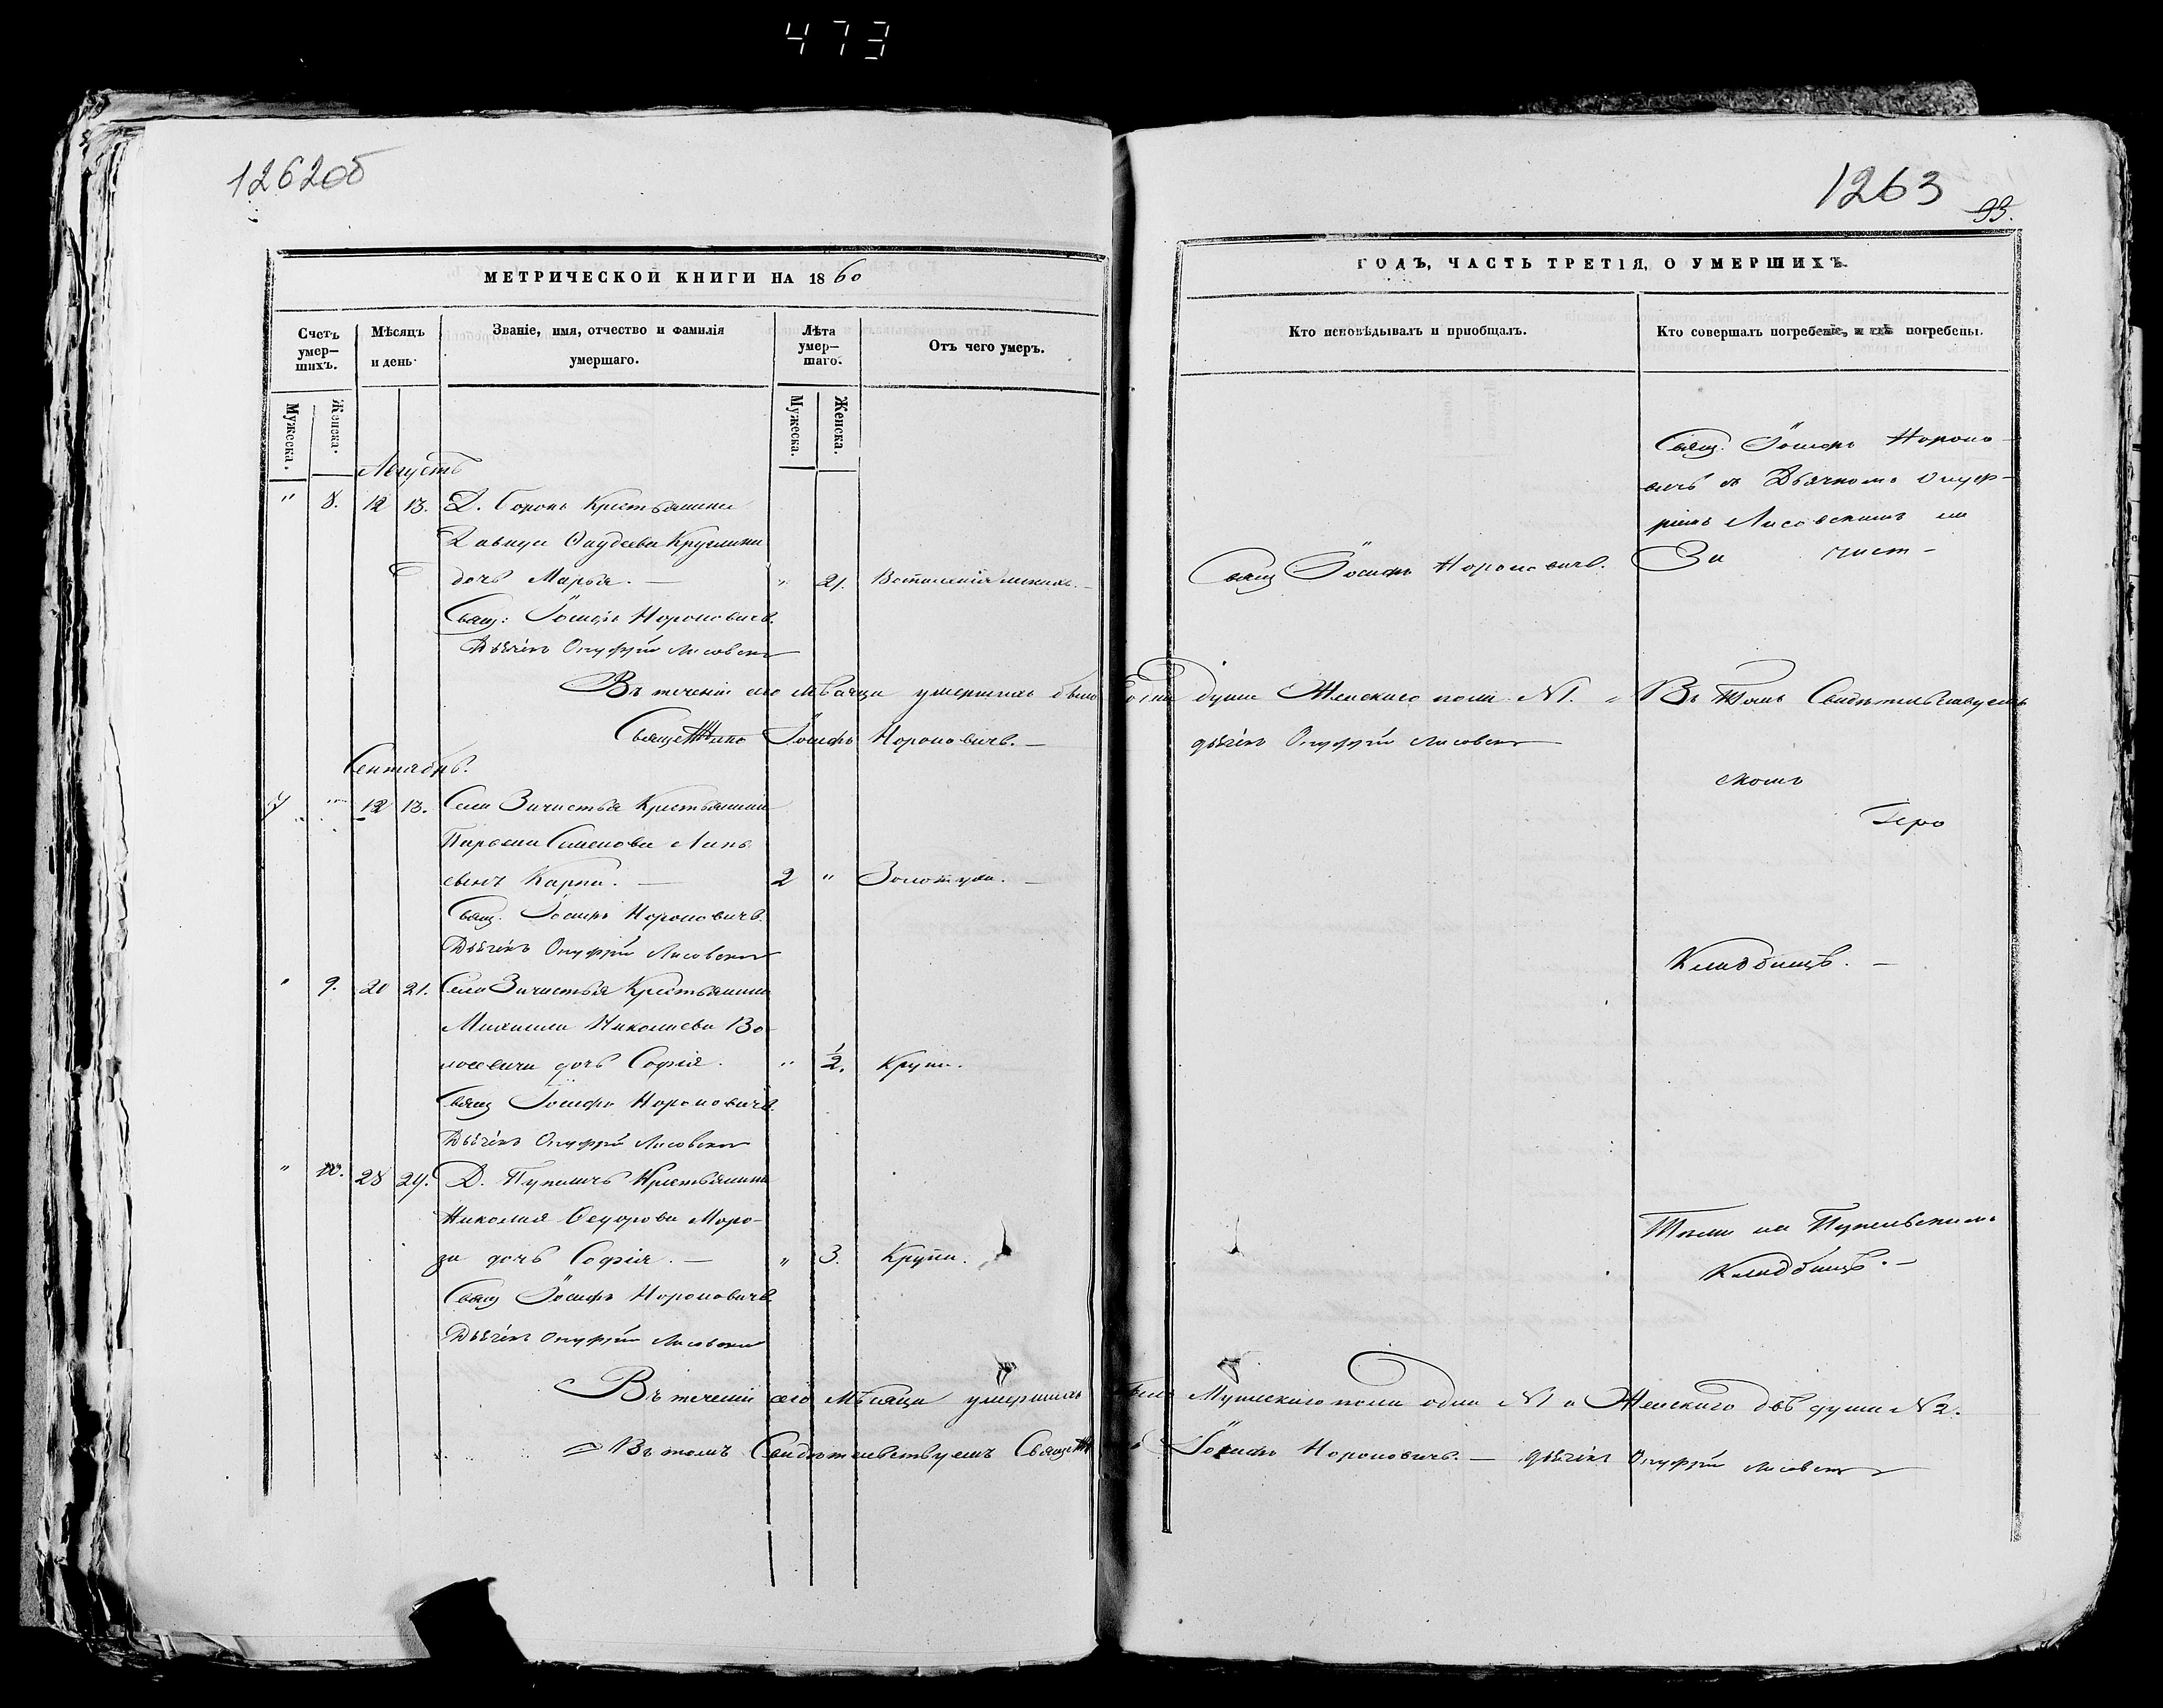 473
1262об
1263
93.
МЕТРИЧЕСКОЙ КНИГИ НА 1860
Счетъ умер-шихъ.
Мѣсяцъ и день.
Званіе, имя, отчество и фамилія умершаго.
Лѣта умер-шаго.
Отъ чего умеръ.
Мужеска.
Женска.
Мужеска.
Женска.
Августъ
" 8. 12 13. Д. Сороки Крестьянина
Давида Фадѣева
дочь Марья. — " 21.
Свящ: Іосифъ Нороновичъ.
Дьячекъ Онуфрій Лисовскій
Въ теченіи сего мѣсяца умершихъ было
Іосифъ Нороновичъ. —
Сентябрь.
7 " 12 13. Села Зачистья Крестьянина
Семенова
сынъ Карпъ. — 2 " Золотуха. —
Свящ. Іосифъ Нороновичъ.
Дьячекъ Онуфрій Лисовскій
" 9. 20 21. Села Зачистья Крестьянина
Михаила Николаева
дочь Софія. " 1/2. Крупа.
Свящ Іосифъ Нороновичъ.
Дьячекъ Онуфрій Лисовскій
" 10. 28 29. Д. Крестьянина
Николая Ѳедорова Моро-
за дочь Софія. — " 3. Крупа.
Свящ Іосифъ Нороновичъ.
Дьячекъ Онуфрій Лисовскій
Въ теченіи сего мѣсяца умершихъ
Въ томъ Свидѣтельствуемъ
ГОДЪ, ЧАСТЬ ТРЕТІЯ, О УМЕРШИХЪ.
Кто исповѣдывалъ и приобщалъ.
Кто совершалъ погребеніе, и гдѣ погребены.
Свящ. Іосифъ Нороно-
вичъ съ Дьячкомъ Онуф-
ріемъ Лисовскимъ на
Свящ Іосифъ Нороновичъ.
За чист-
души Женского пола N1. Въ томъ Свидѣтельствуемъ
дьячекъ Онуфрій Лисовскій
скомъ
Кладбищѣ. —
Тоже на
Кладбищѣ. —
Мужеского пола одна N1 и Женского двѣ души N2.
Іосифъ Нороновичъ. — дьячекъ Онуфрій Лисовскій